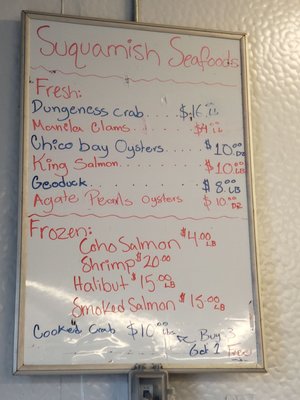 Suquamish Seafoods
Fresh:
Dungeness crab..... $16.00 LB
Manila Clams....... $4 LB
Chico bay Oysters $10.00 DZ
King Salmon........ $10.00 LB
Geoduck............. $8.00 LB
Agate Pearls oysters $10.00 DZ
Frozen:
Coho Salmon $4.00 LB
Shrimp $20.00
Halibut $15.00 LB
Smoked Salmon $15.00 LB
Cooked Crab $10 Buy 3
Get 1 Free